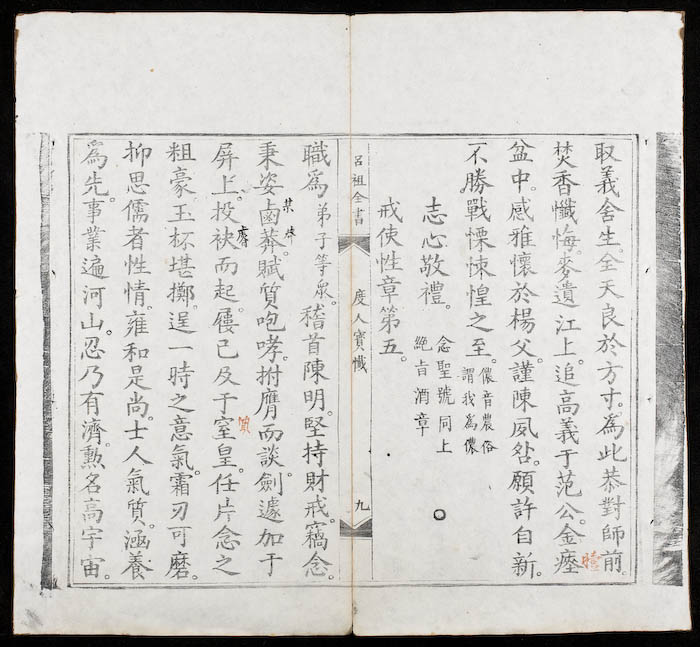 取義舍生。全天良於方寸。爲此恭對師前。
焚香懺悔。麥遺江上。追高義于范公。金瘞
盆中。感雅懷於楊父。謹陳夙咎。願許自新。
不勝戰慄悚惶之至。儂音農俗
謂我爲儂
志心敬禮。念聖號同上
絶旨酒章
戒使性章第五。
呂祖全書
度人寶懺
九
職爲弟子等眾。稽首陳明。堅持財戒。竊念。
秉姿鹵莽。賦質咆哮。拊膺而談。劍遽加于
屏上。投袂而起。屨已及于窒皇。任片念之
粗豪。玉杯堪擲。逞一時之意氣。霜刃可磨。
抑思儒者性情。雍和是尚。士人氣質。涵養
爲先。事業遍河山。忍乃有濟。勲名高宇宙。